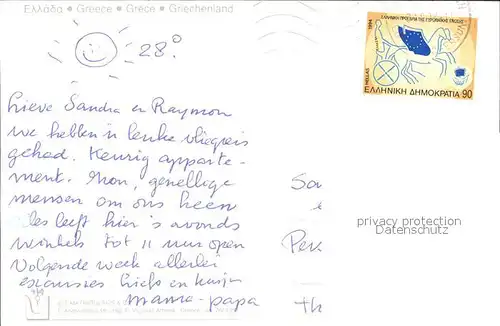 Ελλάδα • Greece • Grèce • Griechenland
28.°
Lieve Sandra en Raymon
we hebben 'n leuke vliegreis
gehad. Keurig apparte-
ment. Mon, gezellige
mensen om ons heen
les leeft hier 's avonds
winkels tot 11 uur open
Volgende week allerlei
excursies
mama - papa
1994
ΕΛΛΗΝΙΚΗ ΠΡΟΕΔΡΙΑ ΤΗΣ ΕΥΡΩΠΑΪΚΗΣ ΕΝΩΣΗΣ
HELLAS
ΕΛΛΗΝΙΚΗ ΔΗΜΟΚΡΑΤΙΑ 90
privacy protection
Datenschutz